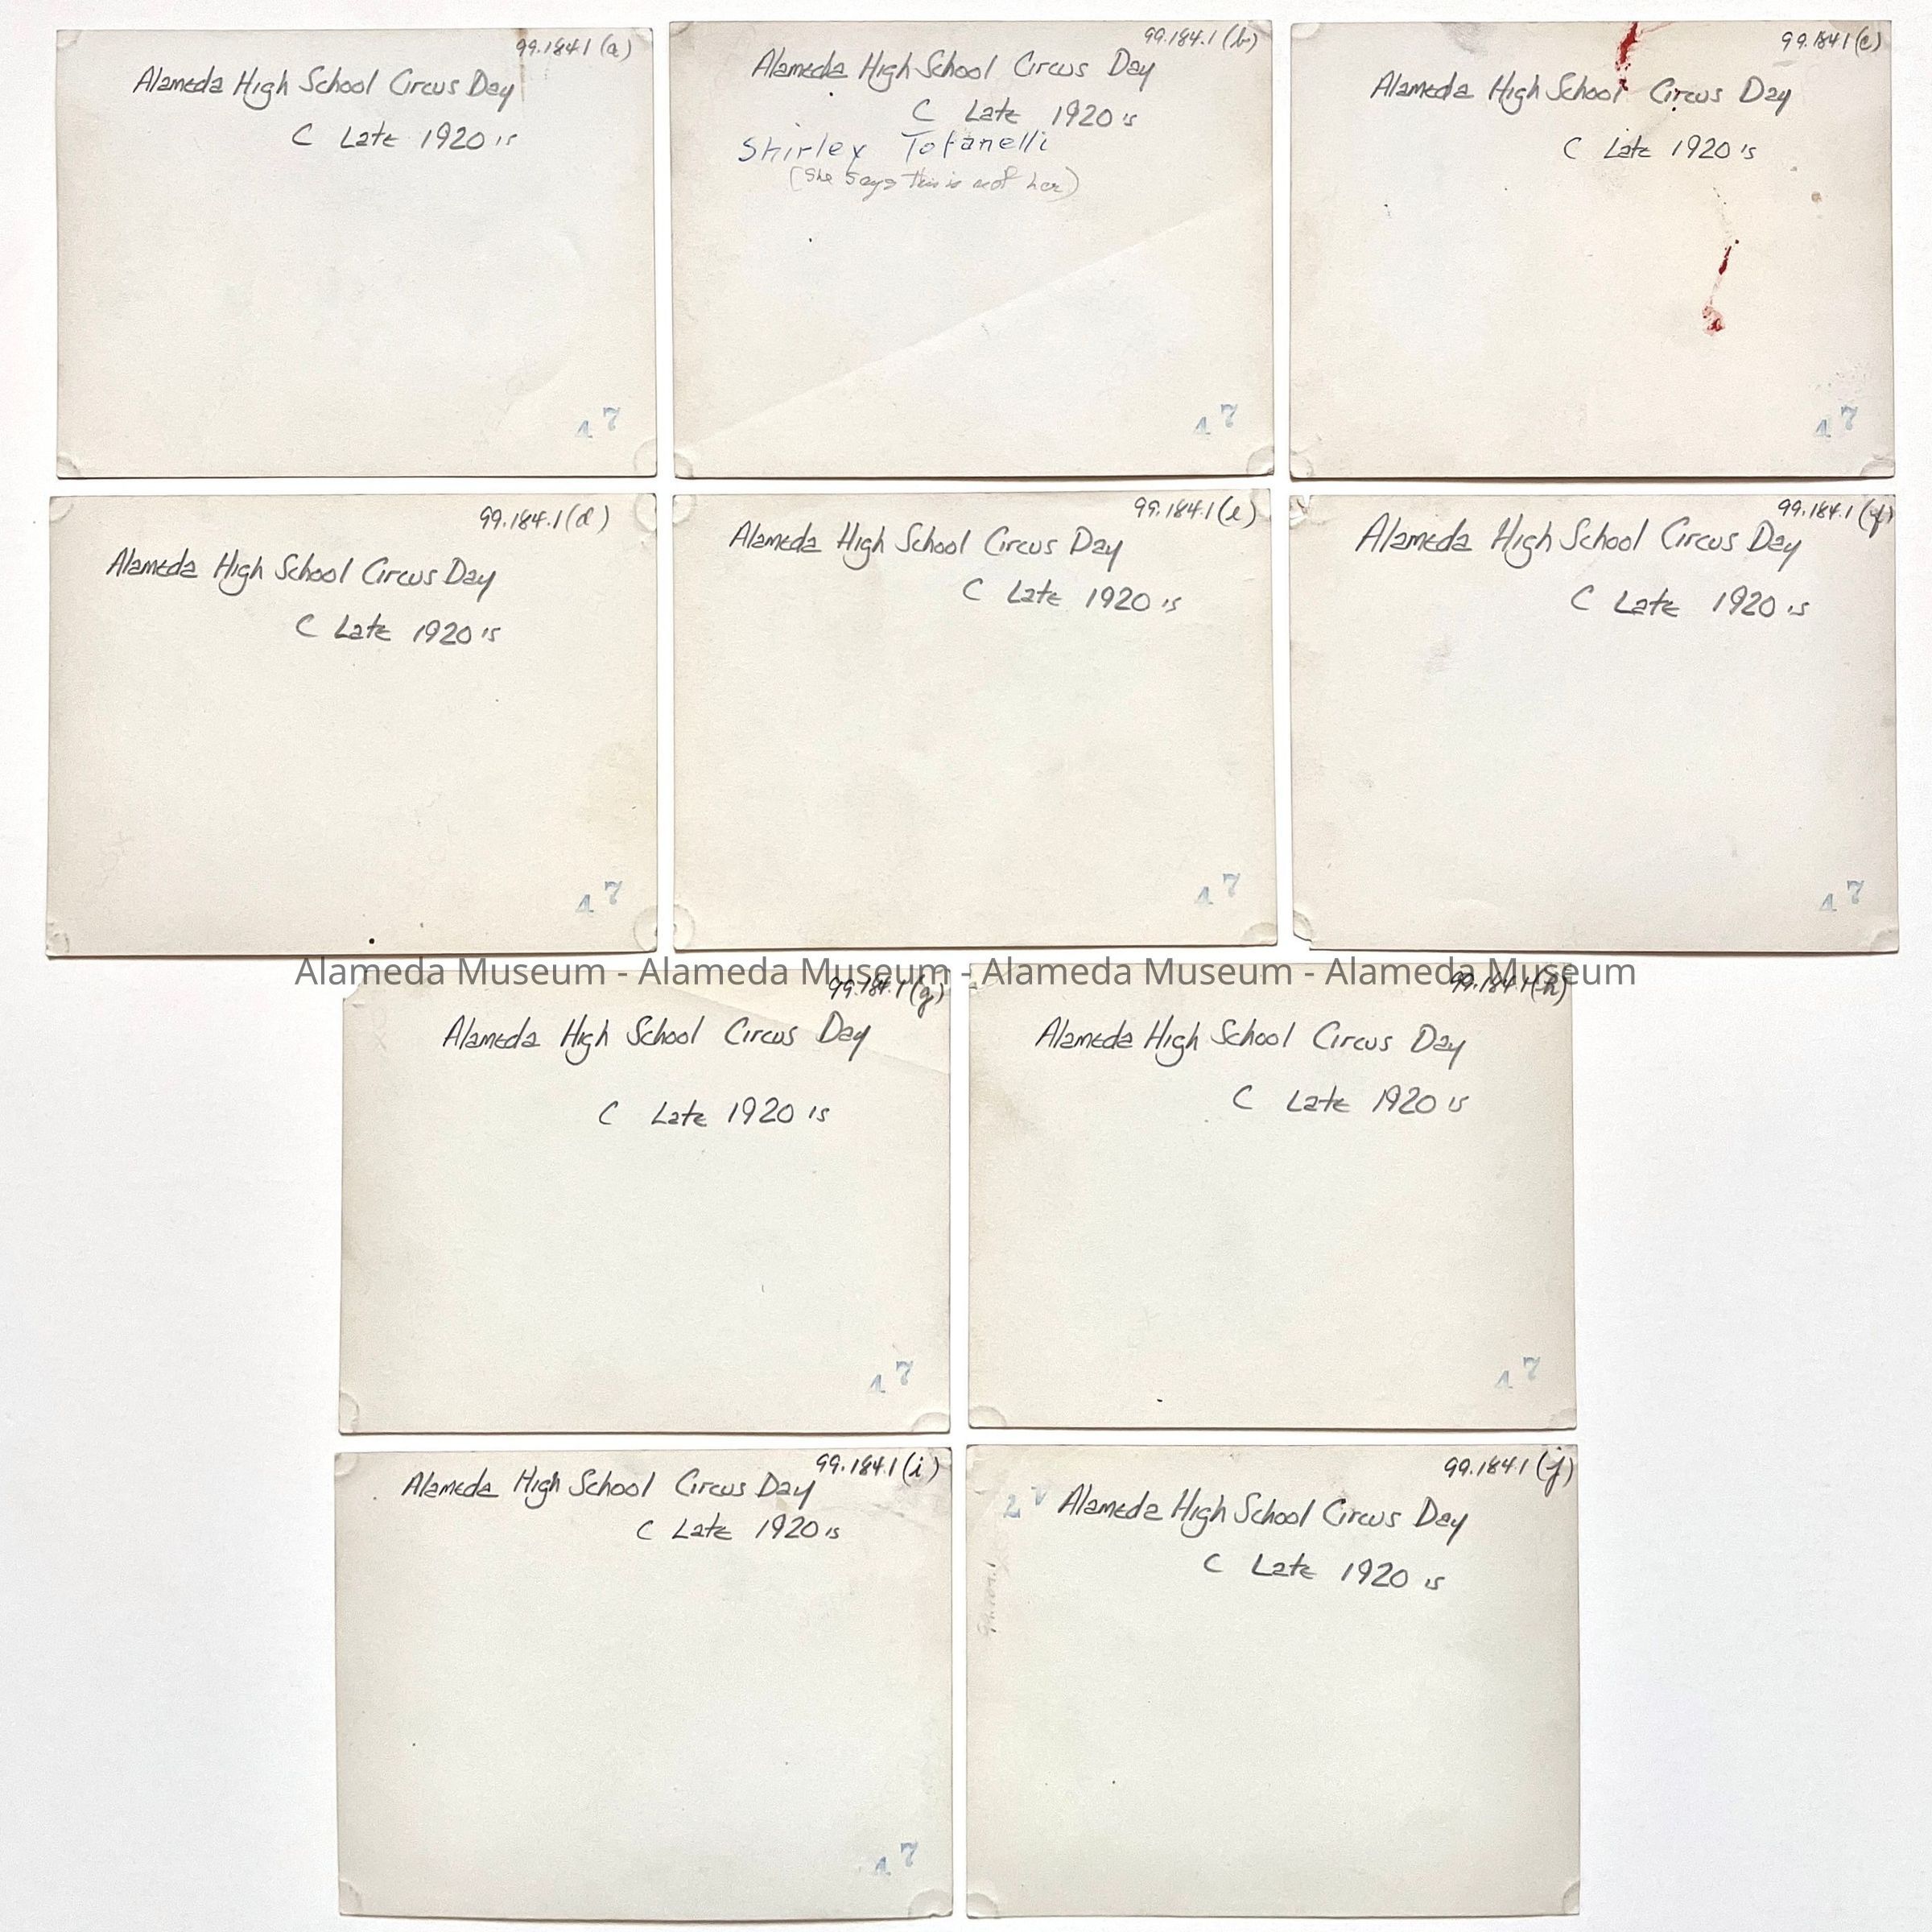 99.184.1 (a)
Alameda High School Circus Day
C Late 1920's
47
99.184.1 (b)
Alameda High School Circus Day
C Late 1920's
Shirley Tofanelli
(She says this is not her)
47
99.184.1 (c)
Alameda High School Circus Day
C Late 1920's
47
99.184.1 (d)
Alameda High School Circus Day
C Late 1920's
47
99.184.1 (e)
Alameda High School Circus Day
C Late 1920's
47
99.184.1 (f)
Alameda High School Circus Day
C Late 1920's
47
Alameda Museum - Alameda Museum - Alameda Museum - Alameda Museum
99.184.1 (g)
Alameda High School Circus Day
C Late 1920's
47
99.184.1 (h)
Alameda High School Circus Day
C Late 1920's
47
99.184.1 (i)
Alameda High School Circus Day
C Late 1920's
47
99.184.1 (j)
Alameda High School Circus Day
C Late 1920's